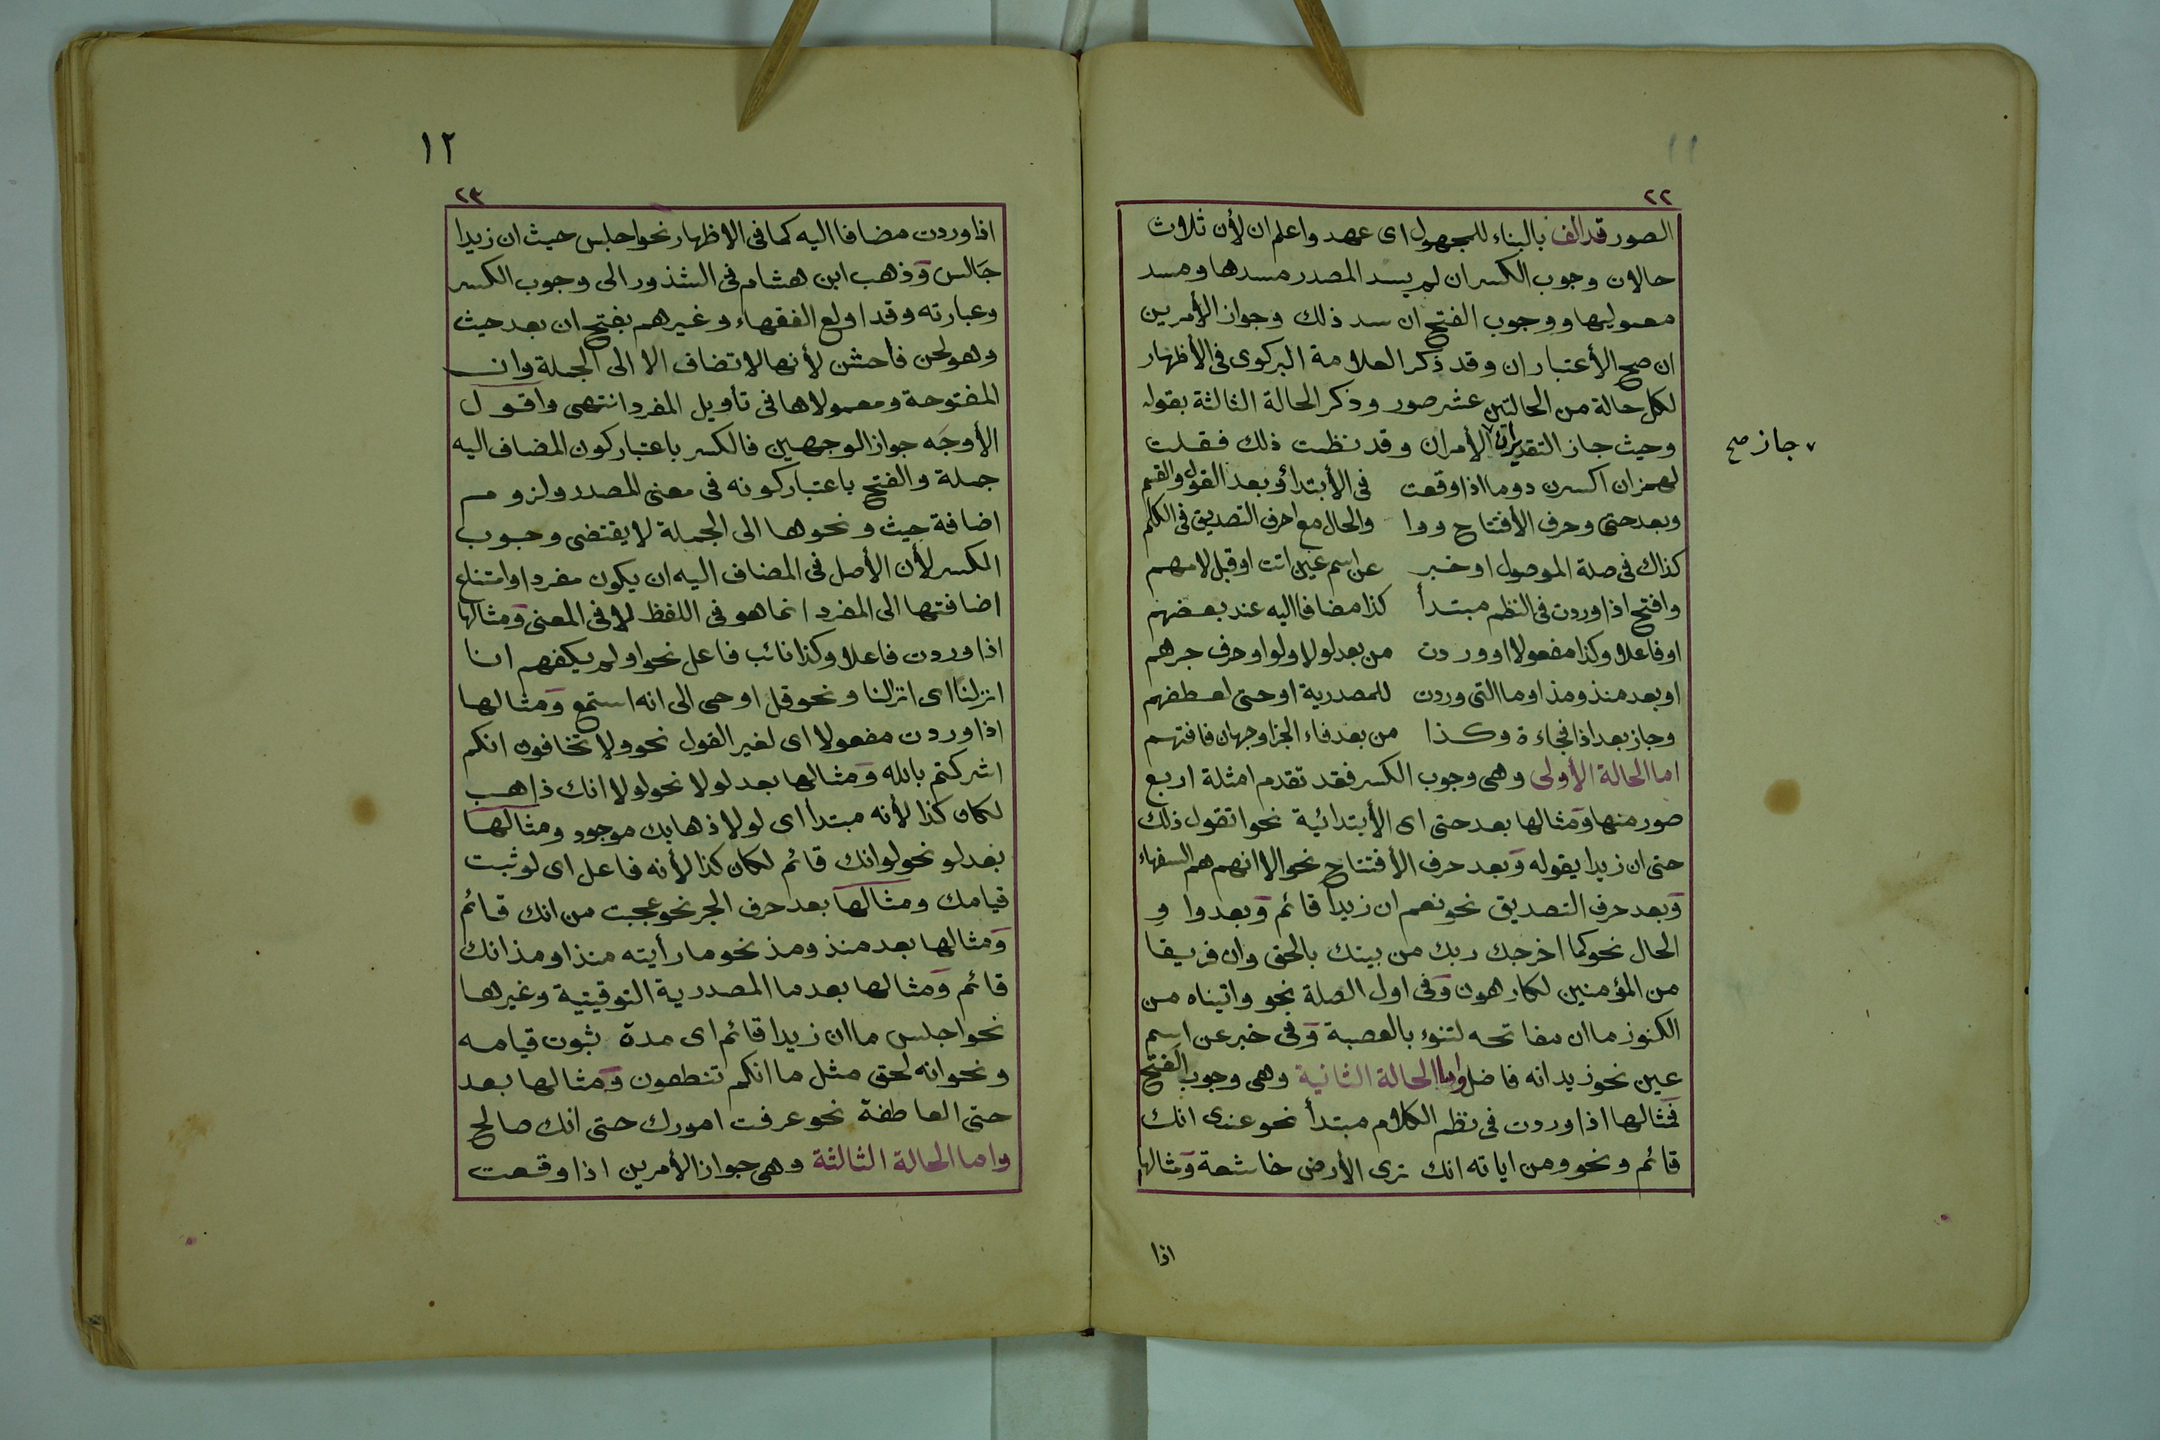 ١١
٢٢
الصور قد الف بالبناء للمجهول اى عهد واعلم ان لأن ثلاث
حالات وجوب الكسر ان لم يسد المصدر مسدها ومسد
معموليها ووجوب الفتح ان سد ذلك وجواز الأمرين
ان صح الأعتباران وقد ذكر العلامة البركوى فى الأظهار
لكل حالة من الحالتين عشر صور وذكر الحالة الثالثة بقوله
وحيث جاز التقديران ٧ الأمران وقد نظمت ذلك فقلت
٧ جاز صح
لهمزان اكسرن دوما اذا وقعت فى الأبتدأ وبعد القول والقسم
وبعد حتى وحرف الأفتتاح ووا والحال مع احرف التصديق فى الكلم
كذاك فى صلة الموصول او خبر عن اسم عين اتت او قبل لامهم
وافتح اذا وردت فى النظم مبتدأ كذا مضافا اليه عند بعضهم
او فاعلا وكذا مفعولا او وردت من بعد لولا ولو او حرف جرهم
او بعد منذ ومذ او ما التى وردت للمصدرية او حتى لعطفهم
وجاز بعد اذا فجاءة وكذا من بعد فاء الجزا وجهان فافتهم
اما الحالة الأولى وهى وجوب الكسر فقد تقدم امثلة اربع
صور منها ومثالها بعد حتى اى الأبتدائية نحو اتقول ذلك
حتى ان زيدا يقوله وبعد حرف الأفتتاح نحو الا انهم هم السفهاء
وبعد حرف التصديق نحو نعم ان زيدا قائم وبعد واو
الحال نحو كما اخرجك ربك من بيتك بالحق وان فريقا
من المؤمنين لكارهون وفى اول الصلة نحو واتيناه من
الكنوز ما ان مفاتحه لتنوء بالعصبة وفى خبر عن اسم
عين نحو زيد انه فاضل واما الحالة الثانية وهى وجوب الفتح
فمثالها اذا وردت فى نظم الكلام مبتدأ نحو عندى انك
قائم ونحو ومن اياته انك ترى الأرض خاشعة ومثالها
اذا
١٢
٢٣
اذا وردت مضافا اليه كما فى الاظهار نحو اجلس حيث ان زيدا
جالس وذهب ابن هشام فى الشذور الى وجوب الكسر
وعبارته وقد اولع الفقهاء وغيرهم بفتح ان بعد حيث
وهو لحن فاحش لأنها لا تضاف الا الى الجملة وان
المفتوحة ومعمولاها فى تأويل المفرد انتهى واقول
الأوجه جواز الوجهين فالكسر باعتبار كون المضاف اليه
جملة والفتح باعتبار كونه فى معنى المصدر ولزوم
اضافة حيث ونحوها الى الجملة لا يقتضى وجوب
الكسر لأن الأصل فى المضاف اليه ان يكون مفردا وامتناع
اضافتها الى المفرد انما هو فى اللفظ لا فى المعنى ومثالها
اذا وردت فاعلا وكذا نائب فاعل نحو اولم يكفهم انا
انزلنا اى انزالنا ونحو قل اوحى الى انه استمع ومثالها
اذا وردت مفعولا اى لغير القول نحو ولا تخافون انكم
اشركتم بالله ومثالها بعد لولا نحو لولا انك ذاهب
لكان كذا لأنه مبتدأ اى لولا ذهابك موجود ومثالها
بعد لو نحو لو انك قائم لكان كذا لأنه فاعل اى لو ثبت
قيامك ومثالها بعد حرف الجر نحو عجبت من انك قائم
ومثالها بعد منذ ومذ نحو ما رأيته منذ او مذ انك
قائم ومثالها بعد ما المصدرية التوقيتية وغيرها
نحو اجلس ما ان زيدا قائم اى مدة ثبوت قيامه
ونحو انه لحق مثل ما انكم تنطقون ومثالها بعد
حتى العاطفة نحو عرفت امورك حتى انك صالح
واما الحالة الثالثة وهى جواز الأمرين اذا وقعت